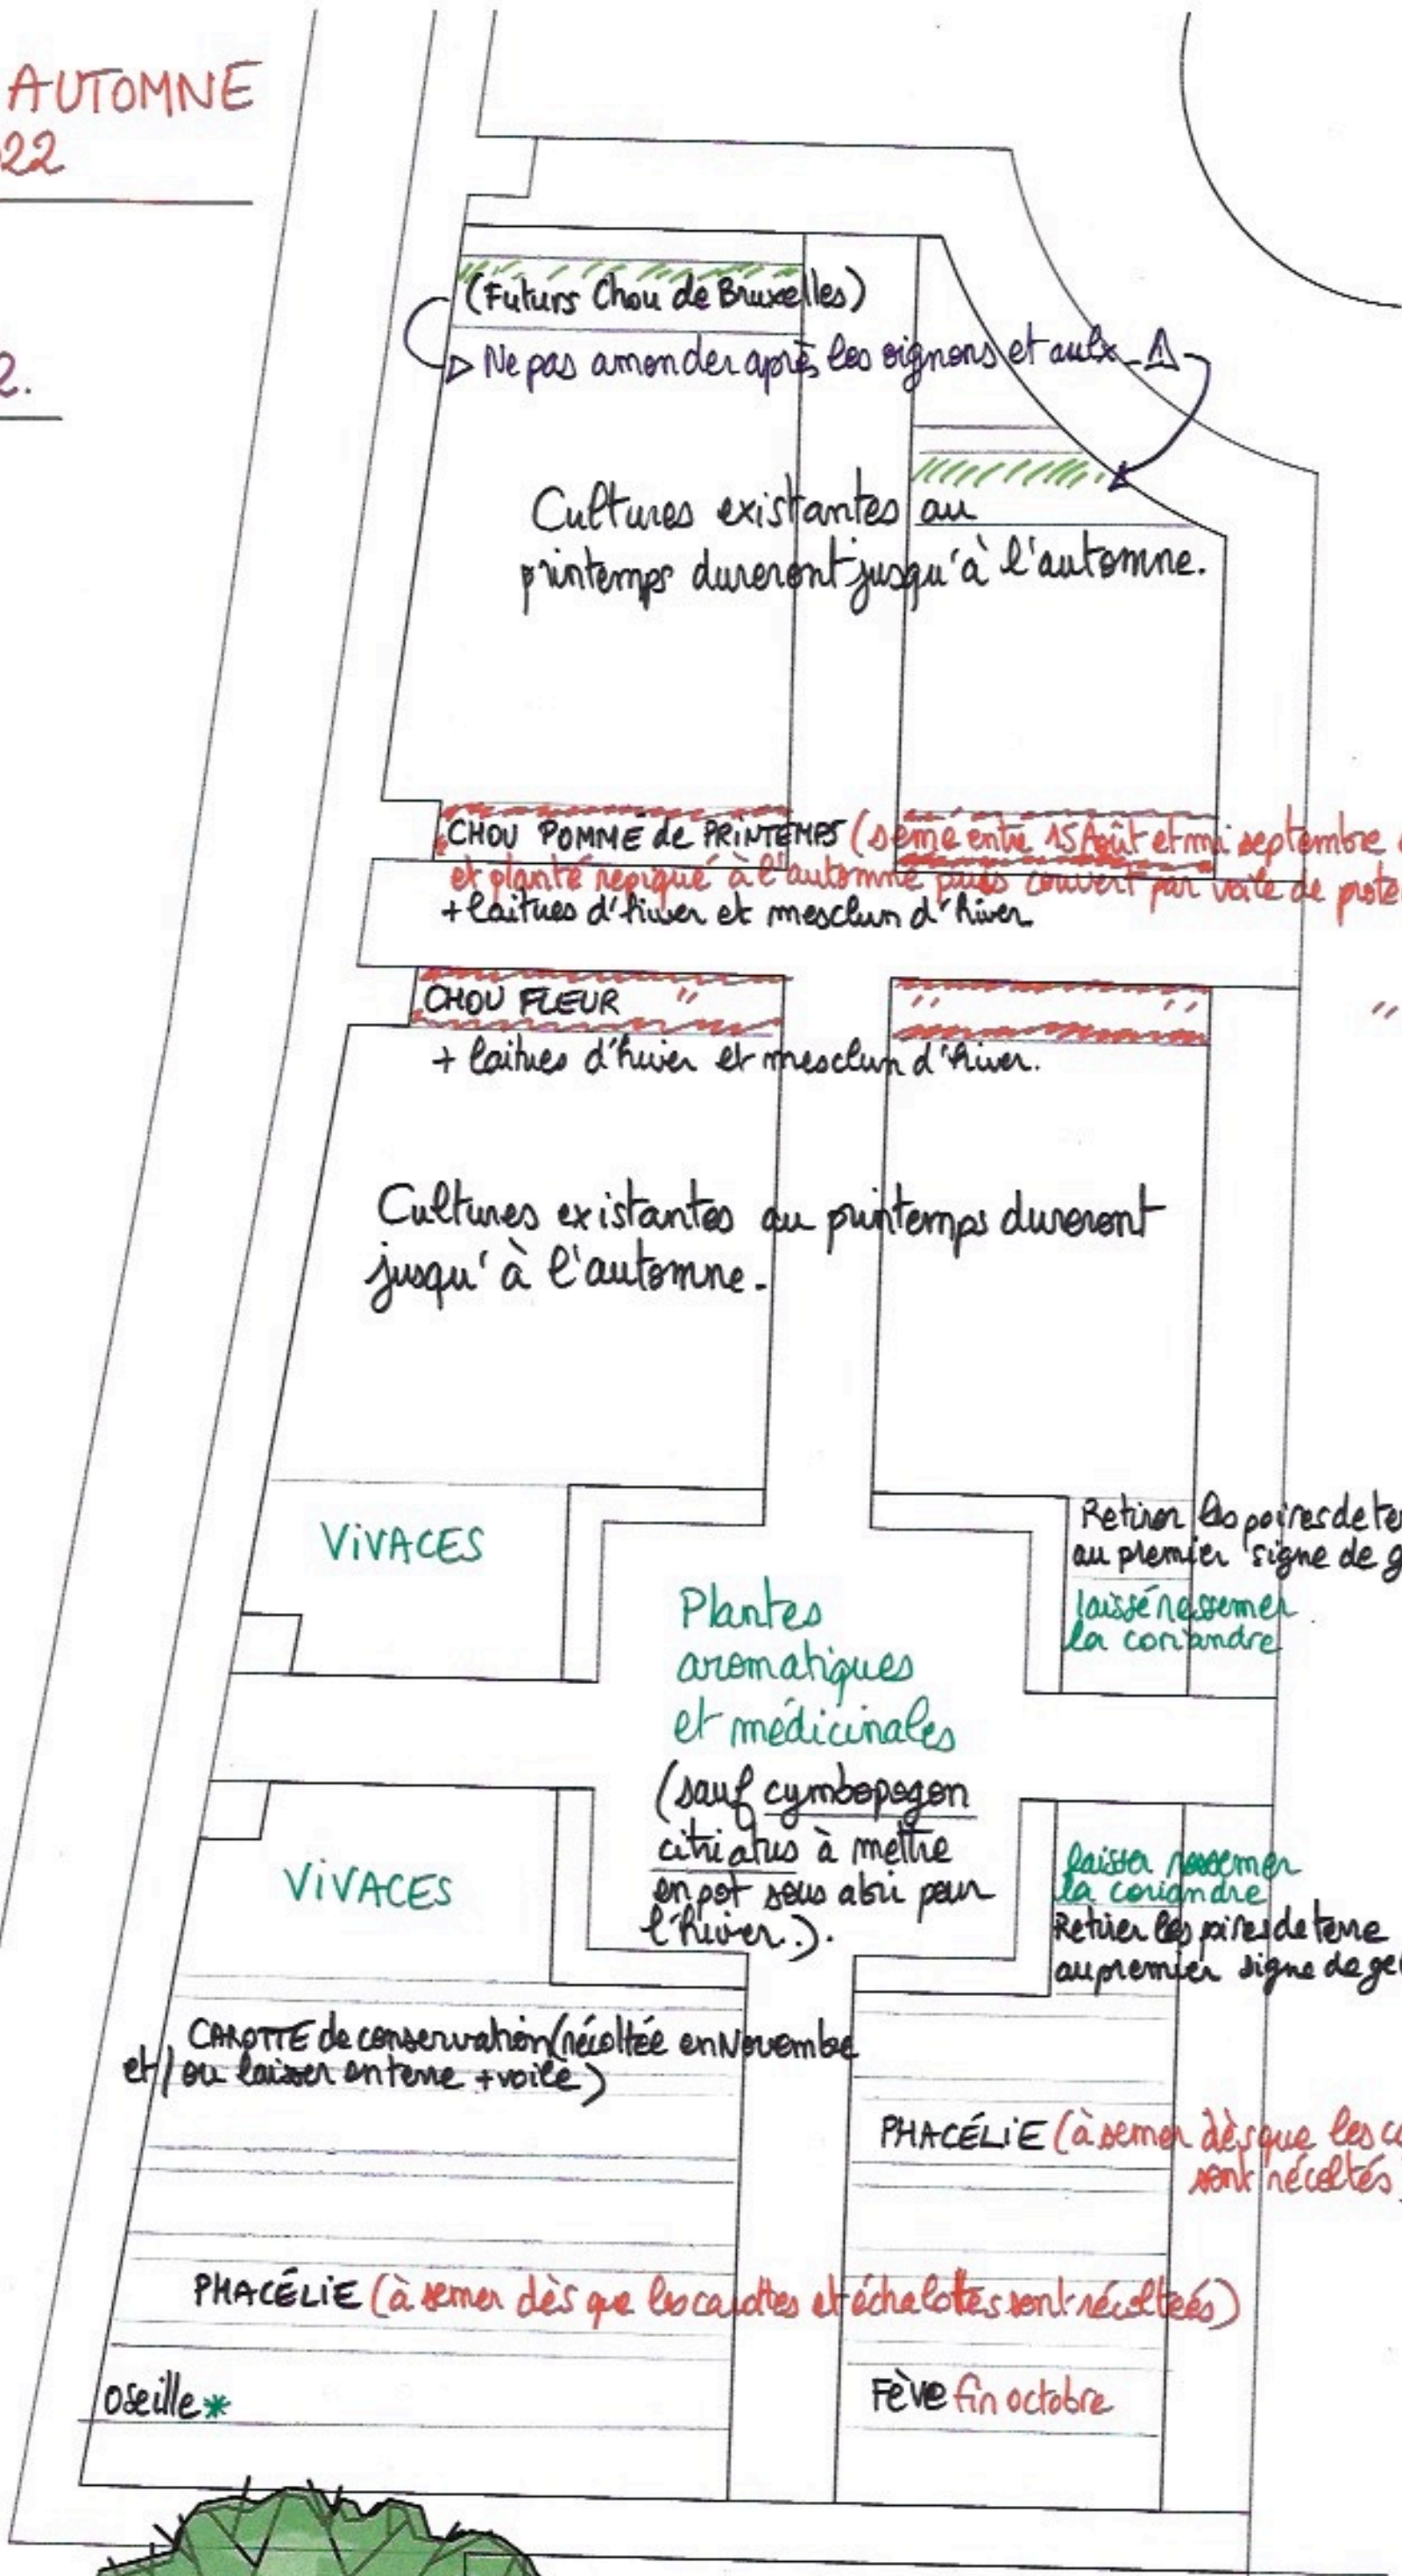 AUTOMNE
22
2.
(Futurs Chou de Bruxelles)
Ne pas amender après les oignons et aulx
Cultures existantes au
printemps dureront jusqu'à l'automne.
CHOU POMMÉ de PRINTEMPS (semé entre 15 Août et mi septembre
et planté repiqué à l'automne puis couvert par voile de prote
+ laitues d'hiver et mesclun d'hiver
CHOU FLEUR " " " "
+ laitues d'hiver et mesclun d'hiver.
Cultures existantes au printemps dureront
jusqu'à l'automne.
VIVACES
Retirer les poires de te
au premier signe de g
laissé ressemer
la coriandre
Plantes
aromatiques
et médicinales
(sauf cymbopogon
citriatus à mettre
en pot sous abri pour
l'hiver.).
VIVACES
laisser ressemer
la coriandre
Retirer les poires de terre
au premier signe de gel
CAROTTE de conservation (récoltée en Novembre
et/ou laisser en terre + voile)
PHACÉLIE (à semer dès que les ca
sont récoltés
PHACÉLIE (à semer dès que les carottes et échalottes sont récoltées)
oseille*
Fève fin octobre